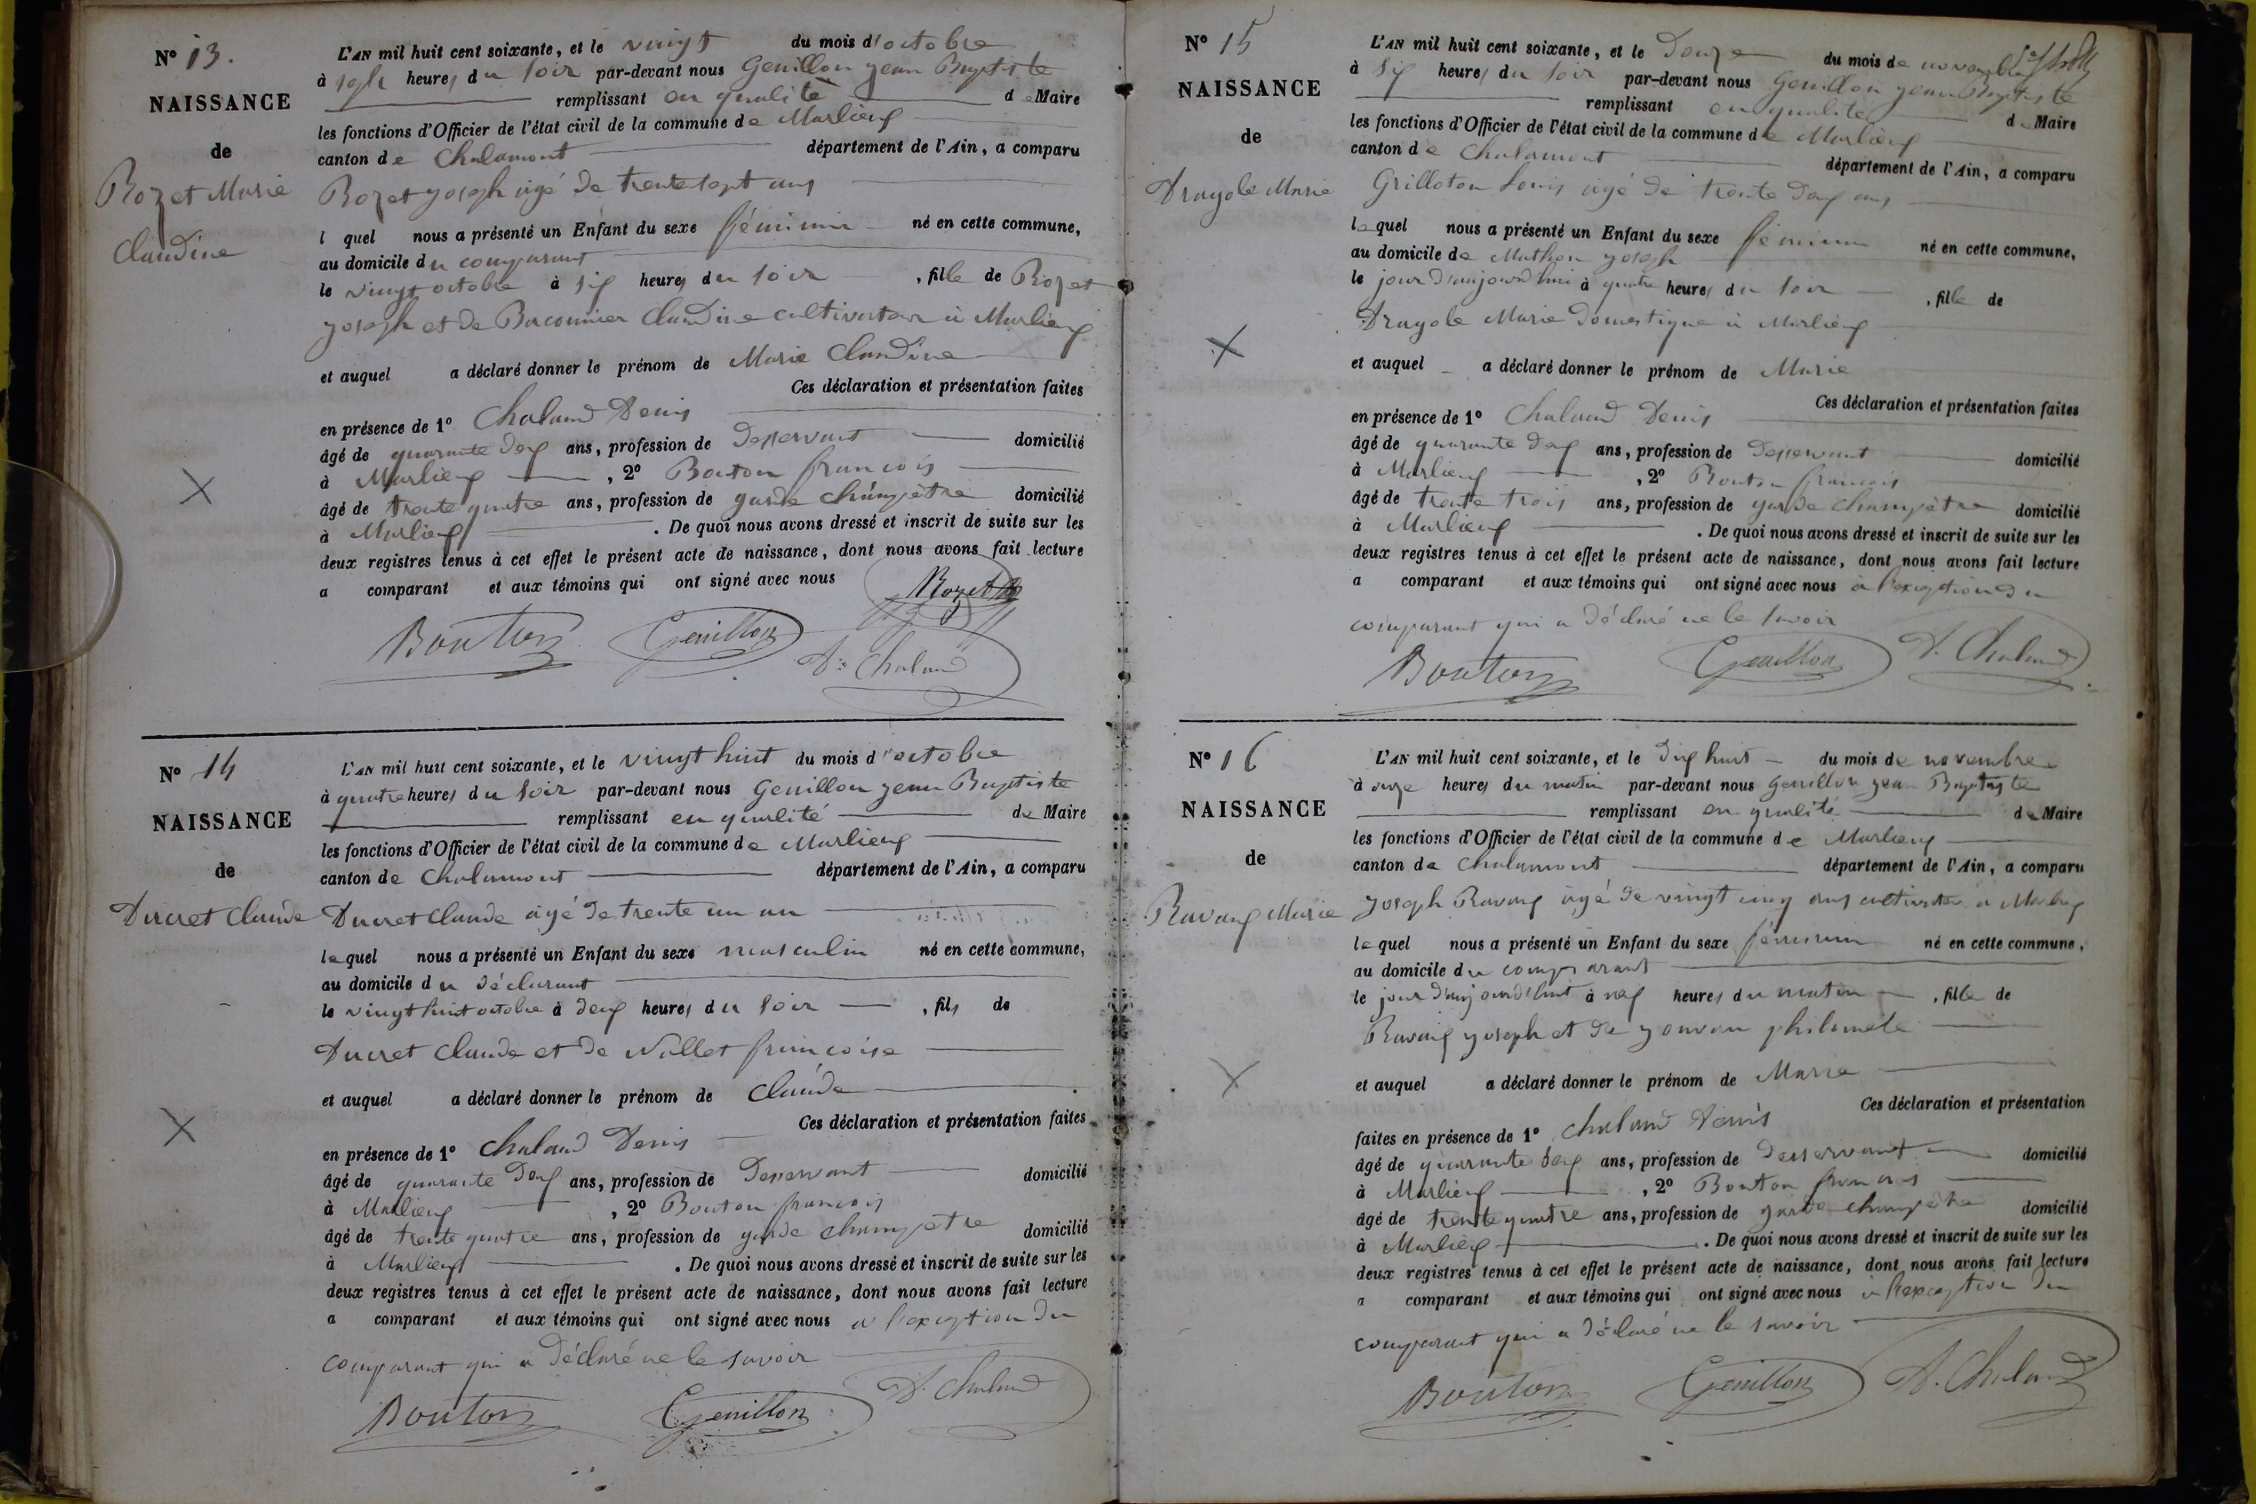 N° 13.
NAISSANCE
de
Rozet Marie
Claudine
L'AN mil huit cent soixante, et le vingt du mois d'octobre
à sept heures du soir par-devant nous Genillon jean Baptiste
remplissant en qualité de Maire
les fonctions d'Officier de l'état civil de la commune de Marlieux
canton de Chalamont département de l'Ain, a comparu
Rozet joseph agé de trente sept ans
l quel nous a présenté un Enfant du sexe féminin né en cette commune,
au domicile du comparant
le vingt octobre à six heures du soir, fille de Rozet
joseph et de Baconnier Claudine cultivateur à Marlieux
et auquel a déclaré donner le prénom de Marie Claudine
Ces déclaration et présentation faites
en présence de 1° Chaland Denis
âgé de quarante deux ans, profession de Desservant domicilié
à Marlieux, 2° Bouton francois
âgé de trente quatre ans, profession de garde champètre domicilié
à Marlieux. De quoi nous avons dressé et inscrit de suite sur les
deux registres tenus à cet effet le présent acte de naissance, dont nous avons fait lecture
a comparant et aux témoins qui ont signé avec nous
Rozet
Bouton Genillon Ds Chaland
N° 14
NAISSANCE
de
Ducret Claude
L'AN mil huit cent soixante, et le vingt huit du mois d'octobre
à quatre heures du soir par-devant nous Genillon jean Baptiste
remplissant en qualité de Maire
les fonctions d'Officier de l'état civil de la commune de Marlieux
canton de Chalamont département de l'Ain, a comparu
Ducret Claude agé de trente un an
lequel nous a présenté un Enfant du sexe masculin né en cette commune,
au domicile du déclarant
le vingt huit octobre à deux heures du soir, fils de
Ducret Claude et de Nillet francoise
et auquel a déclaré donner le prénom de Claude
Ces déclaration et présentation faites
en présence de 1° Chaland Denis
âgé de quarante deux ans, profession de Desservant domicilié
à Marlieux, 2° Bouton francois
âgé de trente quatre ans, profession de garde champètre domicilié
à Marlieux. De quoi nous avons dressé et inscrit de suite sur les
deux registres tenus à cet effet le présent acte de naissance, dont nous avons fait lecture
a comparant et aux témoins qui ont signé avec nous a l'exception du
comparant qui a déclaré ne le savoir
Bouton Genillon D. Chaland
N° 15
NAISSANCE
de
Dragole Marie
L'AN mil huit cent soixante, et le Douze du mois de novembre
à six heures du soir par-devant nous Genillon jean Baptiste
remplissant en qualité de Maire
les fonctions d'Officier de l'état civil de la commune de Marlieux
canton de Chalamont département de l'Ain, a comparu
Grilloton Louis agé de trente deux ans
lequel nous a présenté un Enfant du sexe féminin né en cette commune,
au domicile de Mathon joseph
le jour d'aujourd'hui à quatre heures du soir, fille de
Dragole Marie domestique à Marlieux
et auquel a déclaré donner le prénom de Marie
Ces déclaration et présentation faites
en présence de 1° Chaland Denis
âgé de quarante deux ans, profession de Desservant domicilié
à Marlieux, 2° Bouton francois
âgé de trente trois ans, profession de garde champètre domicilié
à Marlieux. De quoi nous avons dressé et inscrit de suite sur les
deux registres tenus à cet effet le présent acte de naissance, dont nous avons fait lecture
a comparant et aux témoins qui ont signé avec nous à l'exception du
comparant qui a déclaré ne le savoir
Bouton Genillon D. Chaland
N° 16
NAISSANCE
de
Ravaux Marie
L'AN mil huit cent soixante, et le dix huit du mois de novembre
à onze heures du matin par-devant nous Genillon jean Baptiste
remplissant en qualité de Maire
les fonctions d'Officier de l'état civil de la commune de Marlieux
canton de Chalamont département de l'Ain, a comparu
joseph Ravaux agé de vingt cinq ans cultivateur à Marlieux
lequel nous a présenté un Enfant du sexe féminin né en cette commune,
au domicile du comparant
le jour d'aujourd'hui à neuf heures du matin, fille de
Ravaux joseph et de jouvan philomèle
et auquel a déclaré donner le prénom de Marie
Ces déclaration et présentation
faites en présence de 1° Chaland Denis
âgé de quarante deux ans, profession de Desservant domicilié
à Marlieux, 2° Bouton francois
âgé de trente quatre ans, profession de garde champètre domicilié
à Marlieux. De quoi nous avons dressé et inscrit de suite sur les
deux registres tenus à cet effet le présent acte de naissance, dont nous avons fait lecture
a comparant et aux témoins qui ont signé avec nous à l'exception du
comparant qui a déclaré ne le savoir
Bouton Genillon D. Chaland